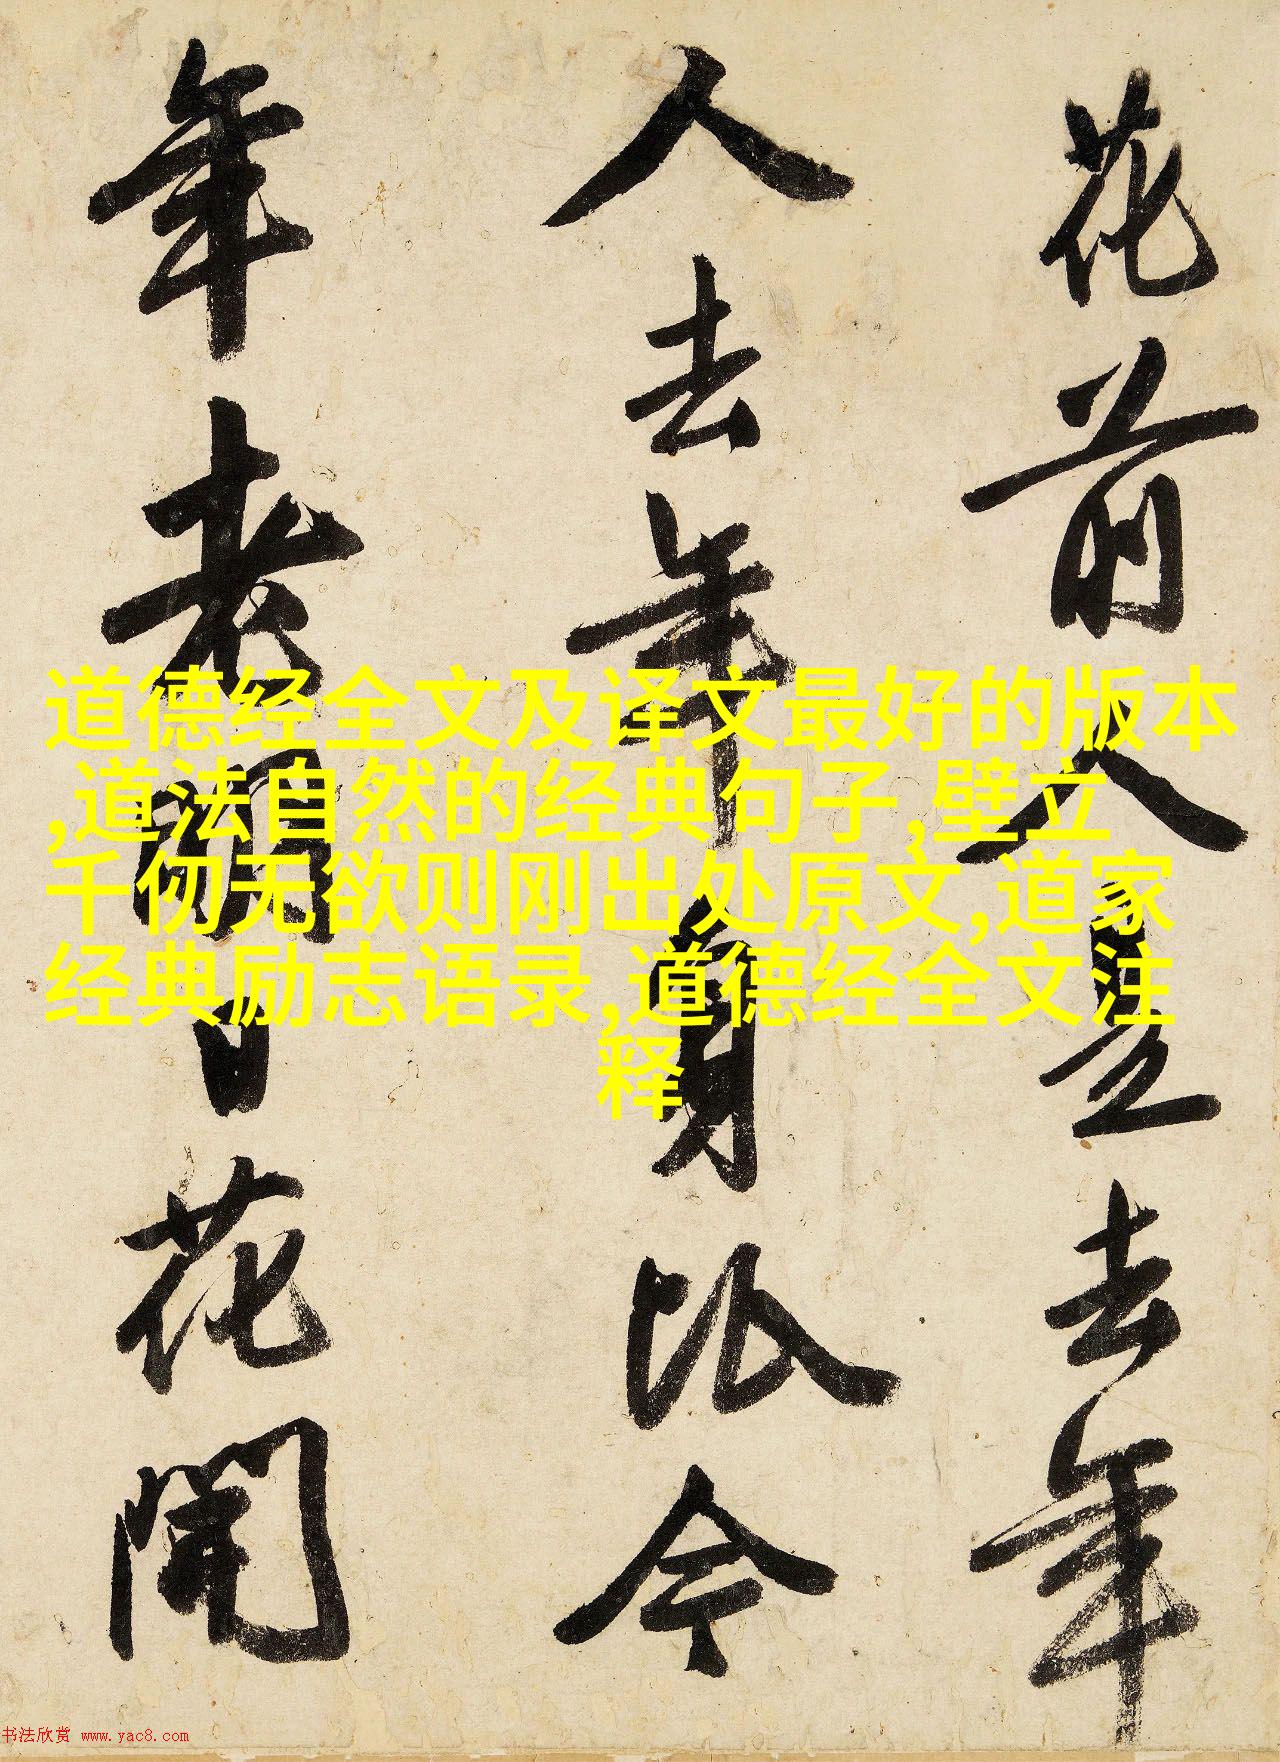 花前人是去年
人去年身比今
年老明日花開
道德经全文及译文最好的版本
,道法自然的经典句子,壁立
千仞无欲则刚出处原文,道家
经典励志语录,道德经全文注
释
书法欣赏 www.yac8.com